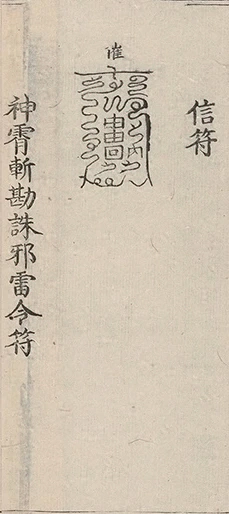 信符
催
神霄斬勘誅邪雷令符